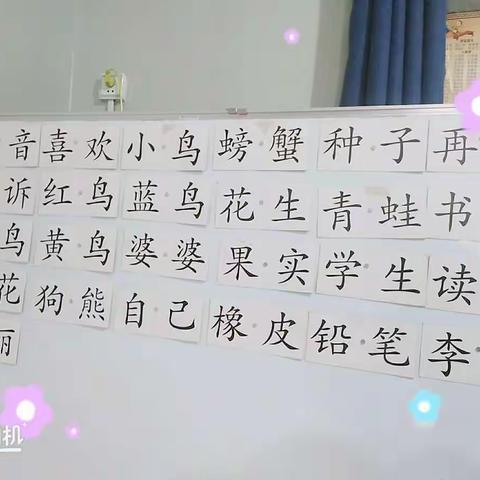 音 喜·欢 小·鸟 螃·蟹 种·子 再
诉 红·鸟 蓝·鸟 花·生 青·蛙 书
鸟 黄·鸟 婆·婆 果·实 学·生 读
花 狗·熊 自·己 橡·皮 铅·笔 李
丽
机